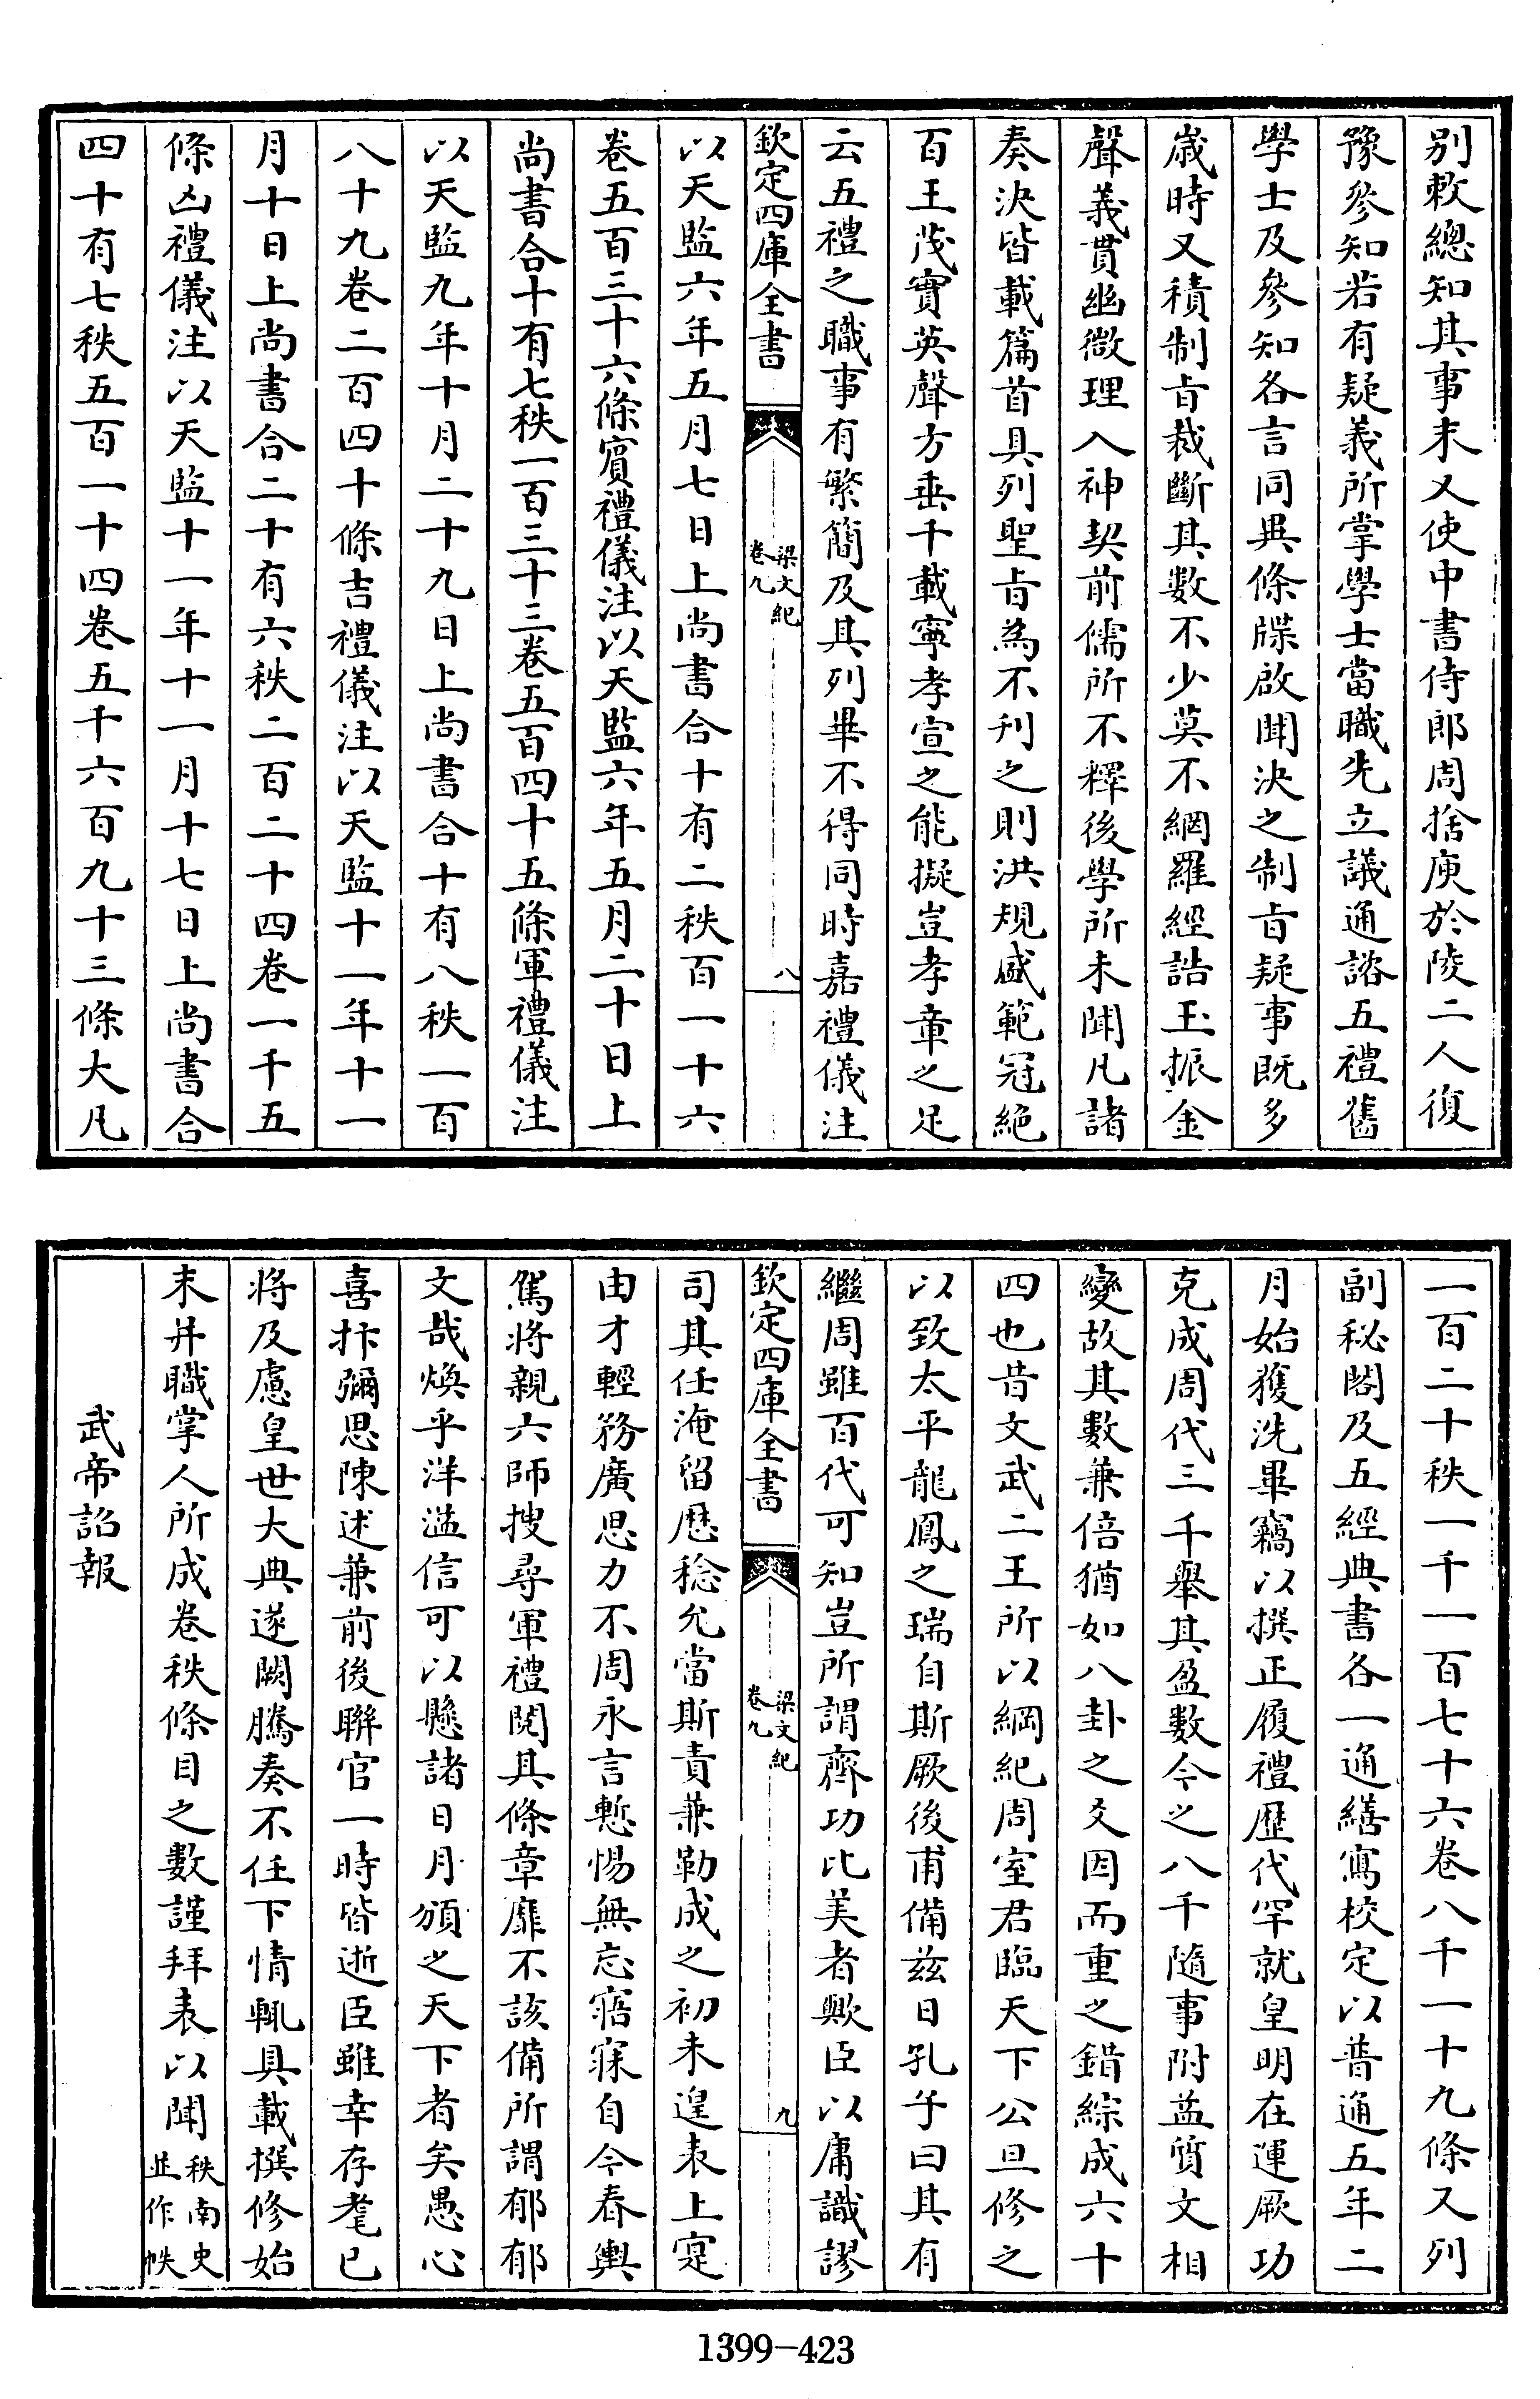 別敕總知其事末又使中書侍郎周捨庾於陵二人復
豫參知若有疑義所掌學士當職先立議通諮五禮舊
學士及參知各言同異條牒啟聞決之制㫖疑事既多
歲時又積制㫖裁斷其數不少莫不網羅經誥玉振金
聲義貫幽微理入神契前儒所不釋後學所未聞凡諸
奏決皆載篇首具列聖㫖為不刋之則洪規盛範冠絶
百王茂實英聲方垂千載寧孝宣之能擬豈孝章之足
云五禮之職事有繁簡及其列畢不得同時嘉禮儀注
欽定四庫全書
梁文紀
卷九
八
以天監六年五月七日上尚書合十有二秩百一十六
卷五百三十六條賓禮儀注以天監六年五月二十日上
尚書合十有七秩一百三十三卷五百四十五條軍禮儀注
以天監九年十月二十九日上尚書合十有八秩一百
八十九卷二百四十條吉禮儀注以天監十一年十一
月十日上尚書合二十有六秩二百二十四卷一千五
條凶禮儀注以天監十一年十一月十七日上尚書合
四十有七秩五百一十四卷五千六百九十三條大凡
一百二十秩一千一百七十六卷八千一十九條又列
副秘閣及五經典書各一通繕寫校定以普通五年二
月始獲洗畢竊以撰正履禮歴代罕就皇明在運厥功
克成周代三千舉其盈數今之八千隨事附益質文相
變故其數兼倍猶如八卦之爻因而重之錯綜成六十
四也昔文武二王所以綱紀周室君臨天下公旦修之
以致太平龍鳳之瑞自斯厥後甫備兹日孔子曰其有
繼周雖百代可知豈所謂齊功比美者歟臣以庸識謬
欽定四庫全書
梁文紀
卷九
九
司其任淹留歴稔允當斯責兼勒成之初未遑表上寔
由才輕務廣思力不周永言慙惕無忘寤寐自今春輿
駕將親六師搜尋軍禮閱其條章靡不該備所謂郁郁
文哉煥乎洋溢信可以懸諸日月頒之天下者矣愚心
喜抃彌思陳述兼前後聯官一時皆逝臣雖幸存耄已
將及慮皇世大典遂闕騰奏不任下情輒具載撰修始
末并職掌人所成卷秩條目之數謹拜表以聞秩南史
並作帙
武帝詔報
1399-423